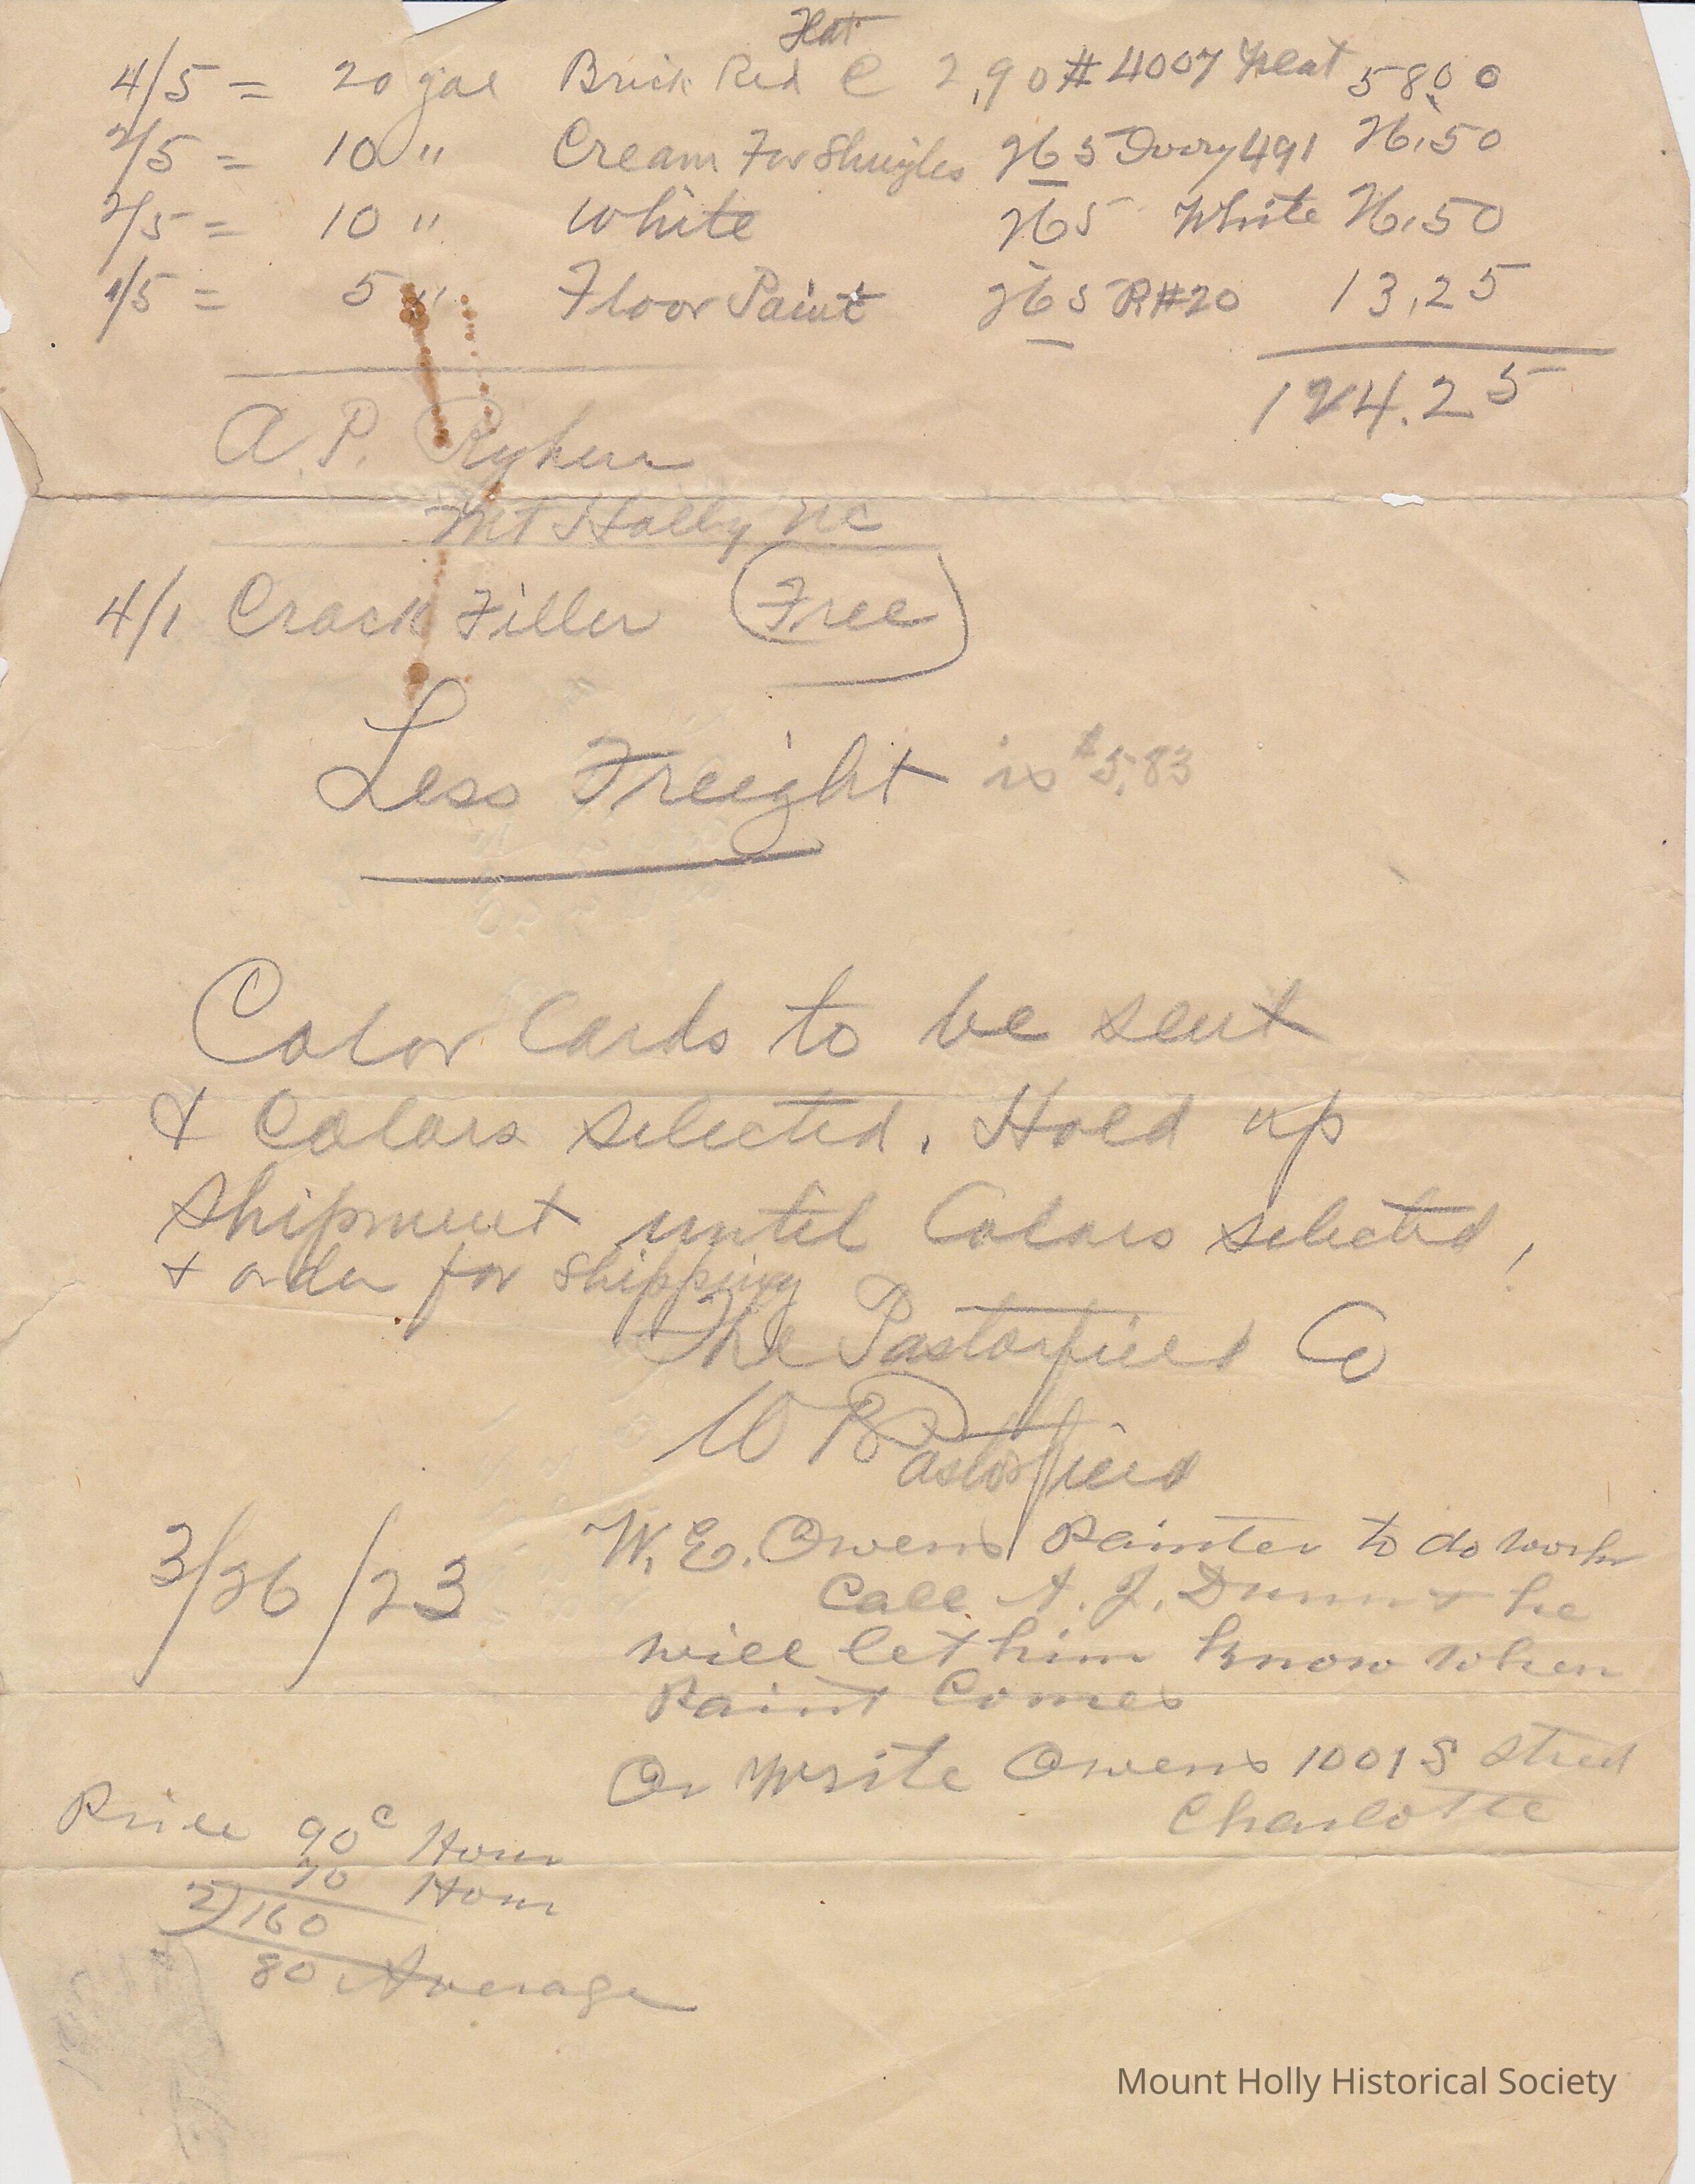 Flat
4/5 = 20 gal Brick Red @ 2,90 #4007 Treat 58.00
2/5 = 10 " Cream For Shingles 265 Ivory 491 26.50
2/5 = 10 " White 265 White 26.50
1/5 = 5 " Floor Paint 265 R#20 13,25
124.25
A. P.
Mt Holly NC
4/1 Crack Filler Free
Less Freight is $5.83
Color Cards to be sent
& Colors selected. Hold up
shipment until Colors selected,
& order for shipping
The Pastorfield Co
W R Pastorfield
3/26/23
W. E. Owens Painter to do work
Call A. J. Dunn & he
will let him know when
Paint Comes
Or Write Owens 1001 S Street
Charlotte
Price 90c Hour
70 Hour
2)160
80 Average
Mount Holly Historical Society